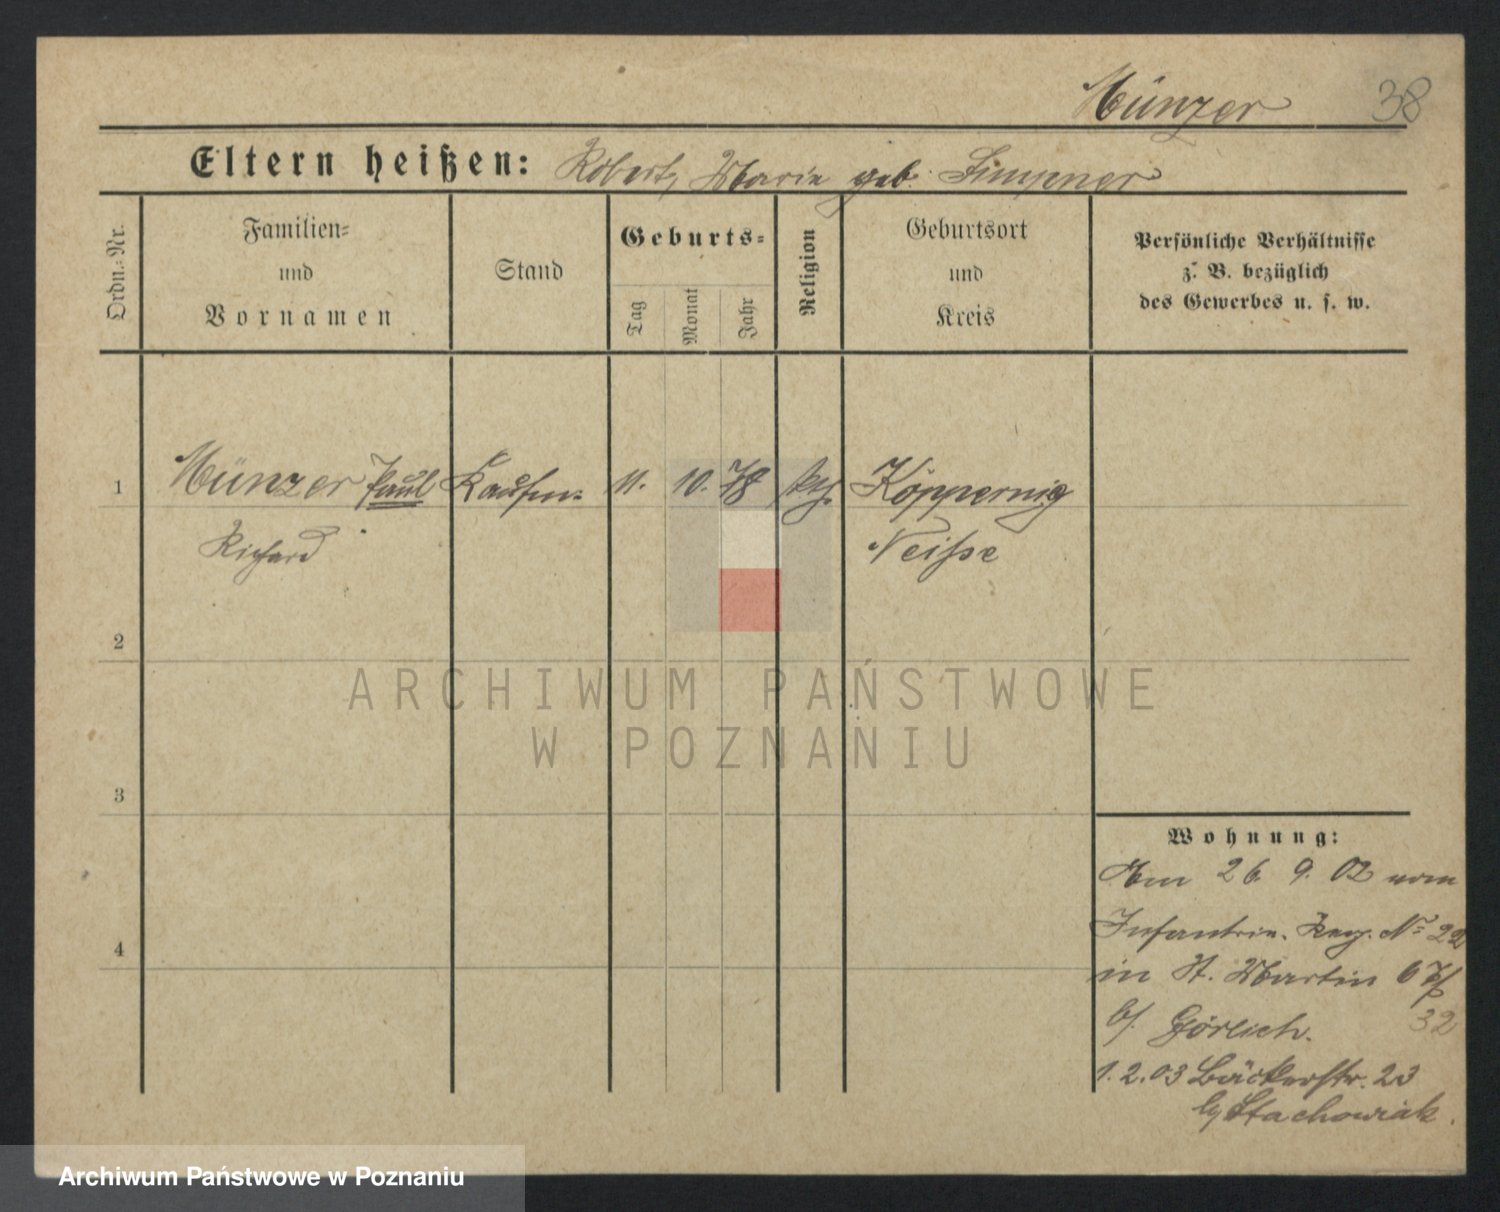 Münzer 38
Eltern heißen: Robert, Marie geb. Simpner
Ordn.-Nr.
Familien-
und
Vornamen
Stand
Geburts-
Tag
Monat
Jahr
Religion
Geburtsort
und
Kreis
Persönliche Verhältnisse
z. B. bezüglich
des Gewerbes u. s. w.
1 Münzer Paul Kaufm. 11. 10. 78 Köppernig
Richard Neisse
2
3
4
ARCHIWUM PAŃSTWOWE
W POZNANIU
Wohnung:
26. 9. 02 vom
Infanterie. Reg. No 22
in St. Martin 67/
b/ Görlich. 32
1.2.03 Bäckerstr. 23
b/ Stachowiak.
Archiwum Państwowe w Poznaniu